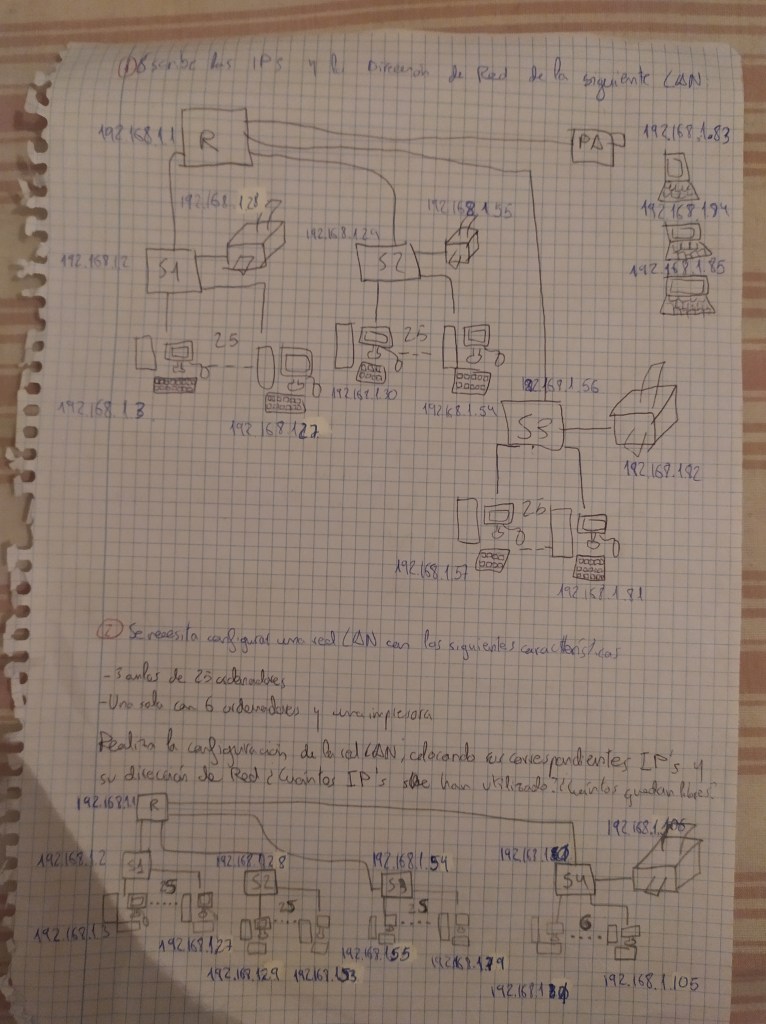 ① Escribe las IPS y la Dirección de Red de la siguiente LAN
192.168.1.1
R
PA
192.168.1.83
192.168.1.28
192.168.1.55
192.168.1.84
192.168.1.2
S1
192.168.1.29
S2
192.168.1.85
25
25
192.168.1.3
192.168.1.27
192.168.1.30
192.168.1.54
192.168.1.56
S3
192.168.1.82
25
192.168.1.57
192.168.1.81
② Se necesita configurar una red LAN con las siguientes características
- 3 aulas de 25 ordenadores
- Una sala con 6 ordenadores y una impresora
Realiza la configuración de la red LAN, colocando sus correspondientes IP's y
su dirección de Red ¿Cuántos IP's se han utilizado? ¿Cuántos quedan libres?
192.168.1.1
R
192.168.1.106
192.168.1.2
S1
192.168.1.28
S2
192.168.1.54
S3
192.168.1
S4
25
25
25
6
192.168.1.3
192.168.1.27
192.168.1.29
192.168.1.53
192.168.1.55
192.168.1.79
192.168.1
192.168.1.105